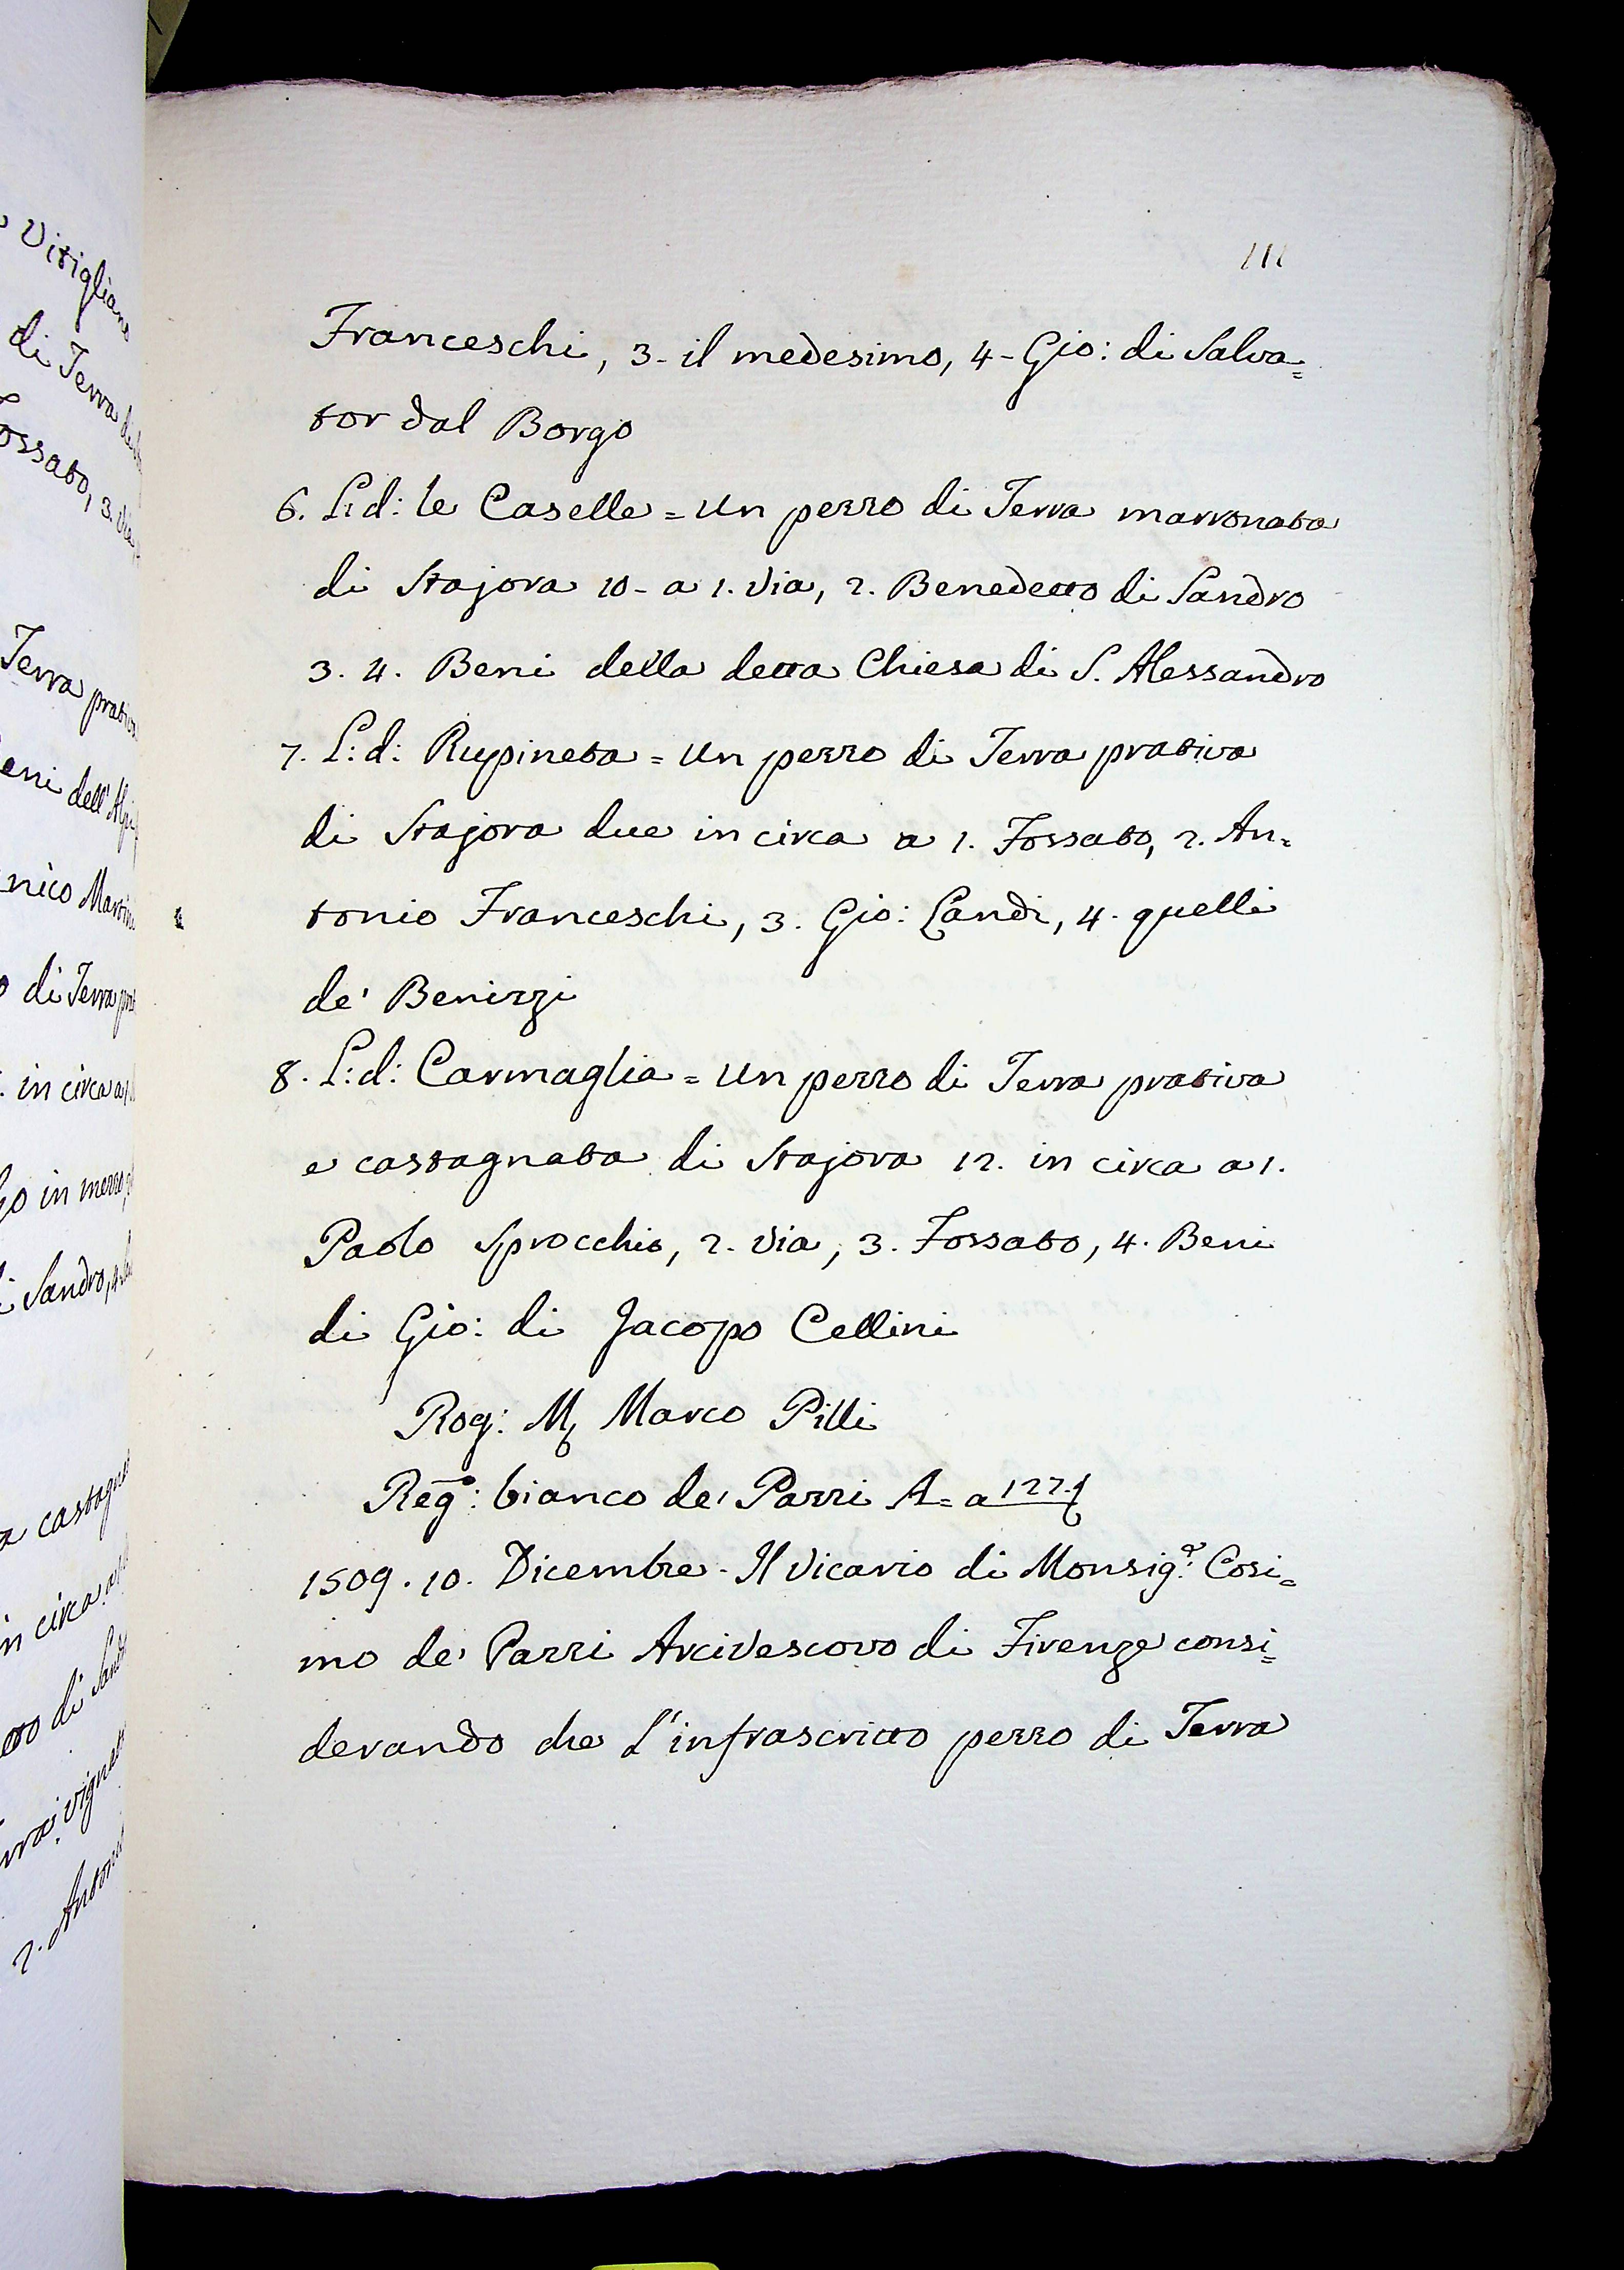 111
Franceschi, 3 - il medesimo, 4 - Gio: di Salva=
tor dal Borgo
6. L: d: le Caselle = Un pezzo di Terra marronata
di Stajora 10 - a 1. Via, 2. Benedetto di Sandro
3. 4. Beni della detta Chiesa di S. Alessandro
7. L: d: Rupineta = Un pezzo di Terra prativa
di Stajora due in circa a 1. Fossato, 2. An=
tonio Franceschi, 3. Gio: Landi, 4. quelli
de' Benizzi
8. L: d: Carmaglia = Un pezzo di Terra prativa
e castagnata di Stajora 12. in circa a 1.
Paolo Sprocchio, 2. Via, 3. Fossato, 4. Beni
di Gio: di Jacopo Cellini
Rog: M. Marco Pilli
Reg.o: bianco de' Pazzi A = a 127.
1509. 10. Dicembre - Il Vicario di Monsig.e Cosi=
mo de' Pazzi Arcivescovo di Firenze consi=
derando che l'infrascritto pezzo di Terra
Vitigliano
di Terra
Fossato, 3.
Terra prativa
Beni dell'
nico
o di Terra
in circa a
in mezzo
Sandro, 4.
a castagnata
in circa a
etto di Sandro
2. Antonio